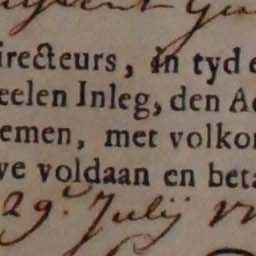 irecteurs, in tyd e
eelen Inleg, den A
emen, met volko
ve voldaan en beta
29. Julij